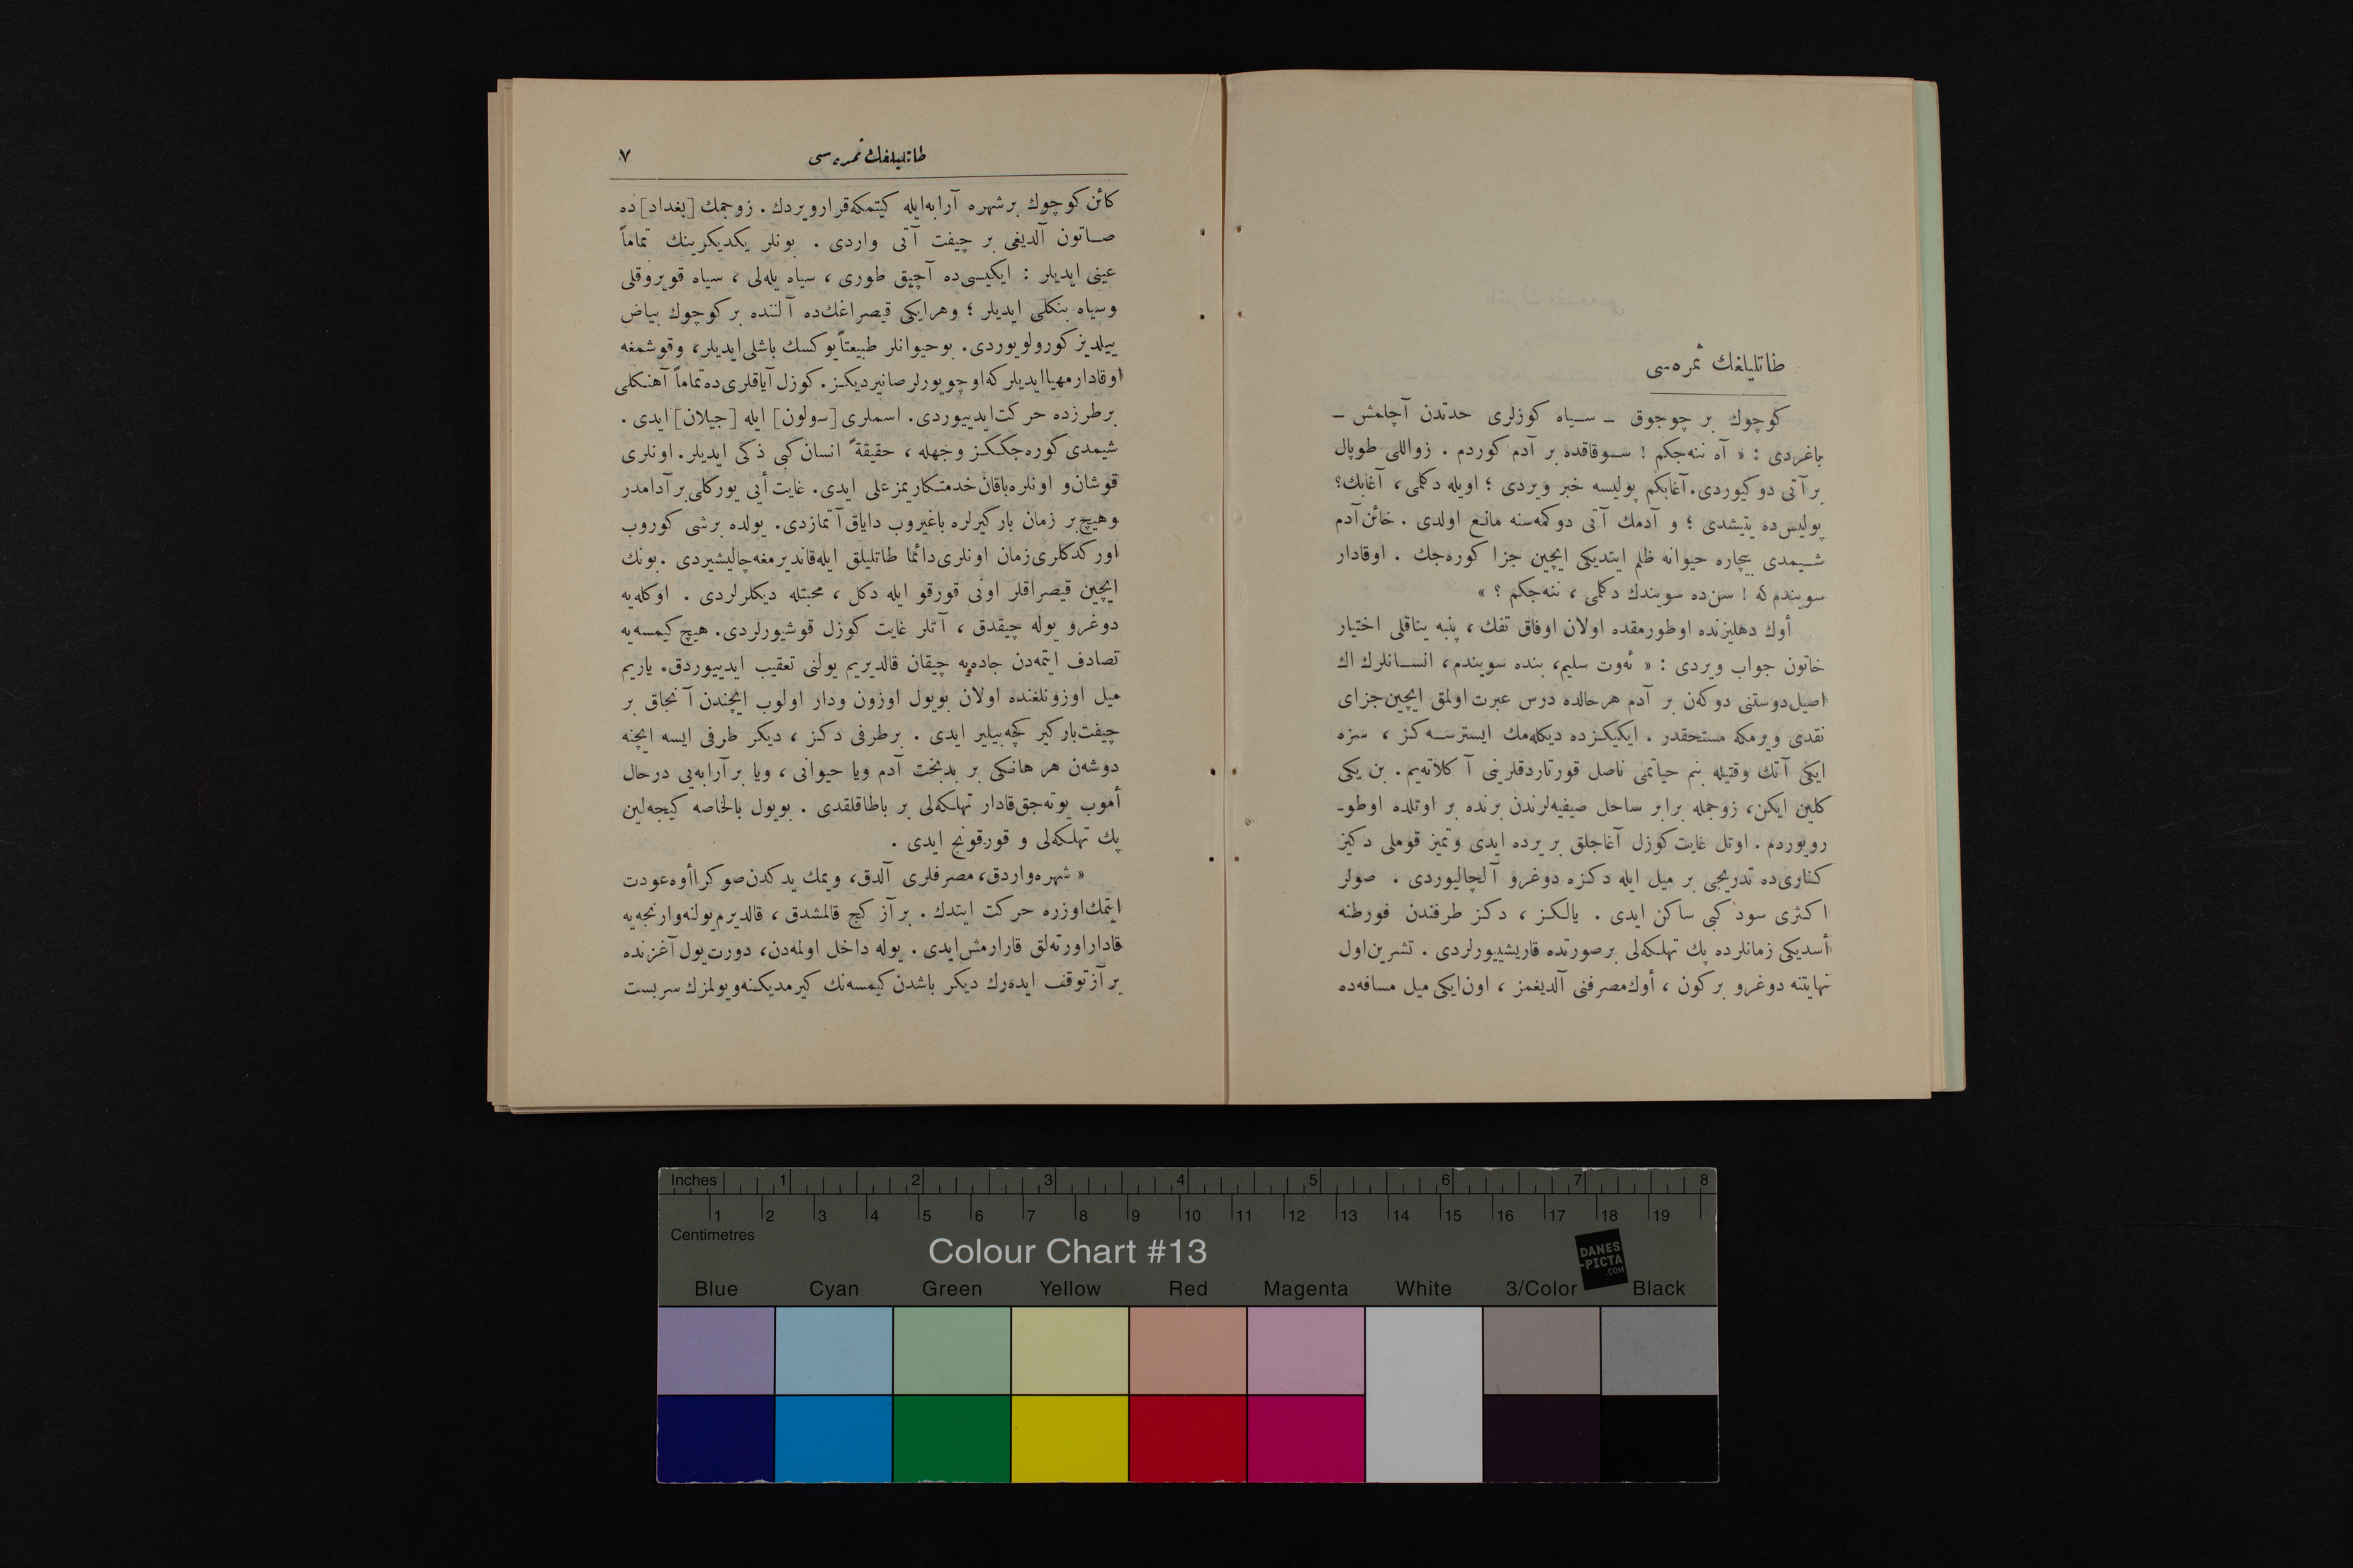 طاتليلغك ثمره‌سى
كوچوك بر چوجوق ـ سياه كوزلرى حدتدن آچلمش ـ
باغردى : « آه ننه‌جكم ! سوقاقده بر آدم كوردم . زواللى طوپال
بر آتى دوكيوردى. آغابكم پوليسه خبر ويردى ؛ اويله دكلمى، آغابك؟
پوليس‌ده يتيشدى ؛ و آدمك آتى دوكمه‌سنه مانع اولدى . خائن آدم
شيمدى بيچاره حيوانه ظلم ايتديكى ايچين جزا كوره‌جك . اوقادار
سويندم كه ! سن‌ده سويندك دكلمى ، ننه‌جكم ؟ »
أوك دهليزنده اوطورمقده اولان اوفاق تفك ، پنبه يناقلى اختيار
خاتون جواب ويردى : « ئه‌وت سليم، بنده سويندم، انسانلرك اك
اصيل دوستنى دوكه‌ن بر آدم هرحالده درس عبرت اولمق ايچين جزاى
نقدى ويرمكه مستحقدر . ايكيكزده ديكله‌مك ايسترسه‌كز ، سزه
ايكى آتك وقتيله بنم حياتمى ناصل قورتاردقلرينى آكلاته‌يم . بن يكى
كلين ايكن، زوجمله برابر ساحل صيفيه‌لرندن برنده بر اوتلده اوطو-
رويوردم . اوتل غايت كوزل آغاجلق بر يرده ايدى و تميز قوملى دكيز
كنارى‌ده تدريجى بر ميل ايله دكزه دوغرو آلچاليوردى . صولر
اكثرى سود كبى ساكن ايدى . يالكز ، دكز طرفندن فورطنه
أسديكى زمانلرده پك تهلكه‌لى بر صورتده قاريشييورلردى . تشرين اول
نهايتنه دوغرو بر كون ، أوك مصرفنى آلديغمز ، اون ايكى ميل مسافه‌ده
طاتليلغك ثمره‌سى
٧
كائن كوچوك بر شهره آرابه ايله كيتمكه قرار ويردك . زوجمك [بغداد] ده
صاتون آلديغى بر چيفت آتى واردى . بونلر يكديكرينك تماماً
عينى ايديلر : ايكيسى‌ده آچيق طورى ، سياه يله‌لى ، سياه قويروقلى
وسياه بنكلى ايديلر ؛ وهر ايكى قيصراغك‌ده آلننده بر كوچوك بياض
ييلديز كورولويوردى. بو حيوانلر طبيعتاً يوكسك باشلى ايديلر، وقوشمغه
اوقادار مهيا ايديلر كه اوچويورلر صانيرديكز. كوزل آياقلرى‌ده تماماً آهنكلى
بر طرزده حركت ايدييوردى. اسملرى [سولون] ايله [جيلان] ايدى .
شيمدى كوره‌جككز وجهله ، حقيقةً انسان كبى ذكى ايديلر. اونلرى
قوشان و اونلره باقان خدمتكاريمز على ايدى. غايت أيى يوركلى بر آدامدر
وهيچ بر زمان باركيرلره باغيروب داياق آتمازدى. يولده بر شى كوروب
اوركدكلرى زمان اونلرى دائما طاتليلق ايله قانديرمغه چاليشيردى . بونك
ايچين قيصراقلر اونى قورقو ايله دكل ، محبتله ديكلرلردى . اوكله‌يه
دوغرو يوله چيقدق ، آتلر غايت كوزل قوشيورلردى. هيچ كيمسه‌يه
تصادف ايتمه‌دن جاده‌يه چيقان قالديريم يولنى تعقيب ايدييوردق. ياريم
ميل اوزونلغنده اولان بويول اوزون ودار اولوب ايچندن آنجاق بر
چيفت باركير كچه‌بيلير ايدى . بر طرفى دكز ، ديكر طرفى ايسه ايچنه
دوشه‌ن هر هانكى بر بدبخت آدم ويا حيوانى ، ويا بر آرابه‌يى درحال
أموب يوته‌جق قادار تهلكه‌لى بر باطاقلقدى . بويول بالخاصه كيجه‌لين
پك تهلكه‌لى و قورقونج ايدى .
« شهره واردق، مصرفلرى آلدق، ويمك يدكدن صوكرا أوه عودت
ايتمك اوزره حركت ايتدك . بر آز كچ قالمشدق ، قالديرم يولنه وارنجه‌يه
قادار اورته‌لق قارارمش ايدى . يوله داخل اولمه‌دن، دورت يول آغزنده
بر آز توقف ايده‌رك ديكر باشدن كيمسه‌نك كيرمديكنه و يولمزك سربست
Inches 1 2 3 4 5 6 7 8
1 2 3 4 5 6 7 8 9 10 11 12 13 14 15 16 17 18 19
Centimetres
Colour Chart #13
DANES
-PICTA
.COM
Blue Cyan Green Yellow Red Magenta White 3/Color Black